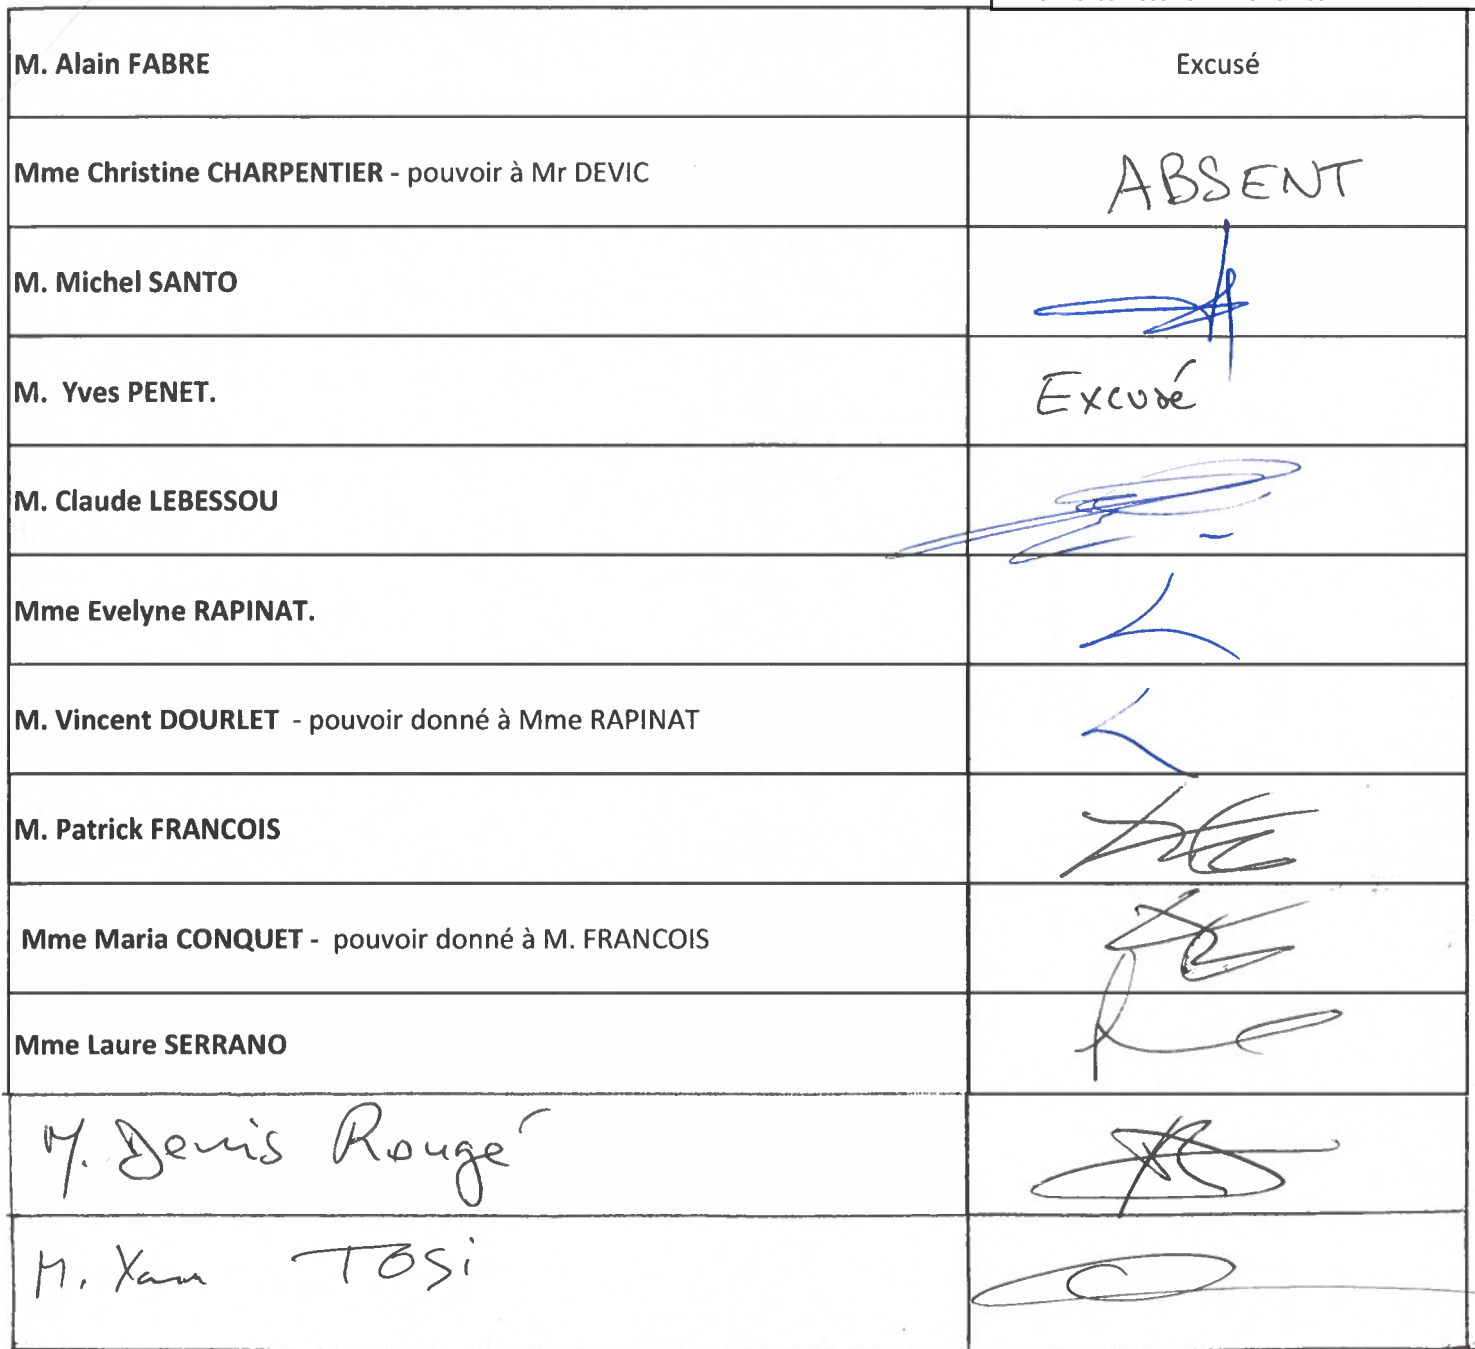 M. Alain FABRE
Excusé
Mme Christine CHARPENTIER - pouvoir à Mr DEVIC
ABSENT
M. Michel SANTO
M. Yves PENET.
Excusé
M. Claude LEBESSOU
Mme Evelyne RAPINAT.
M. Vincent DOURLET - pouvoir donné à Mme RAPINAT
M. Patrick FRANCOIS
Mme Maria CONQUET - pouvoir donné à M. FRANCOIS
Mme Laure SERRANO
M. Denis Rougé
M. TOSi